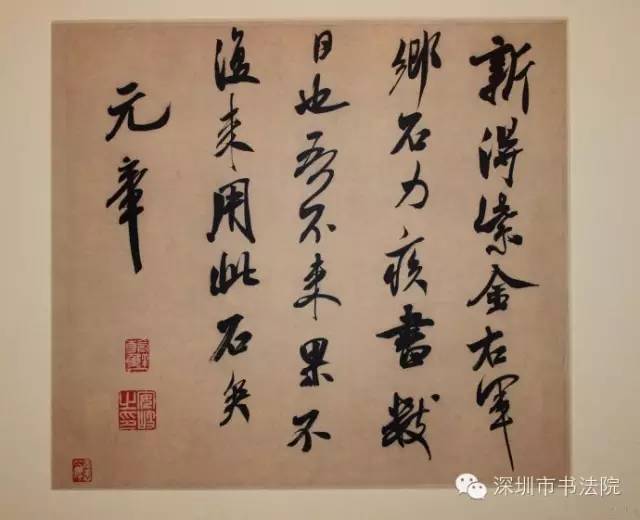 新得紫金右軍
鄉石力疾書數
日也吾不来果不
復来用此石矣
元章
深圳市书法院